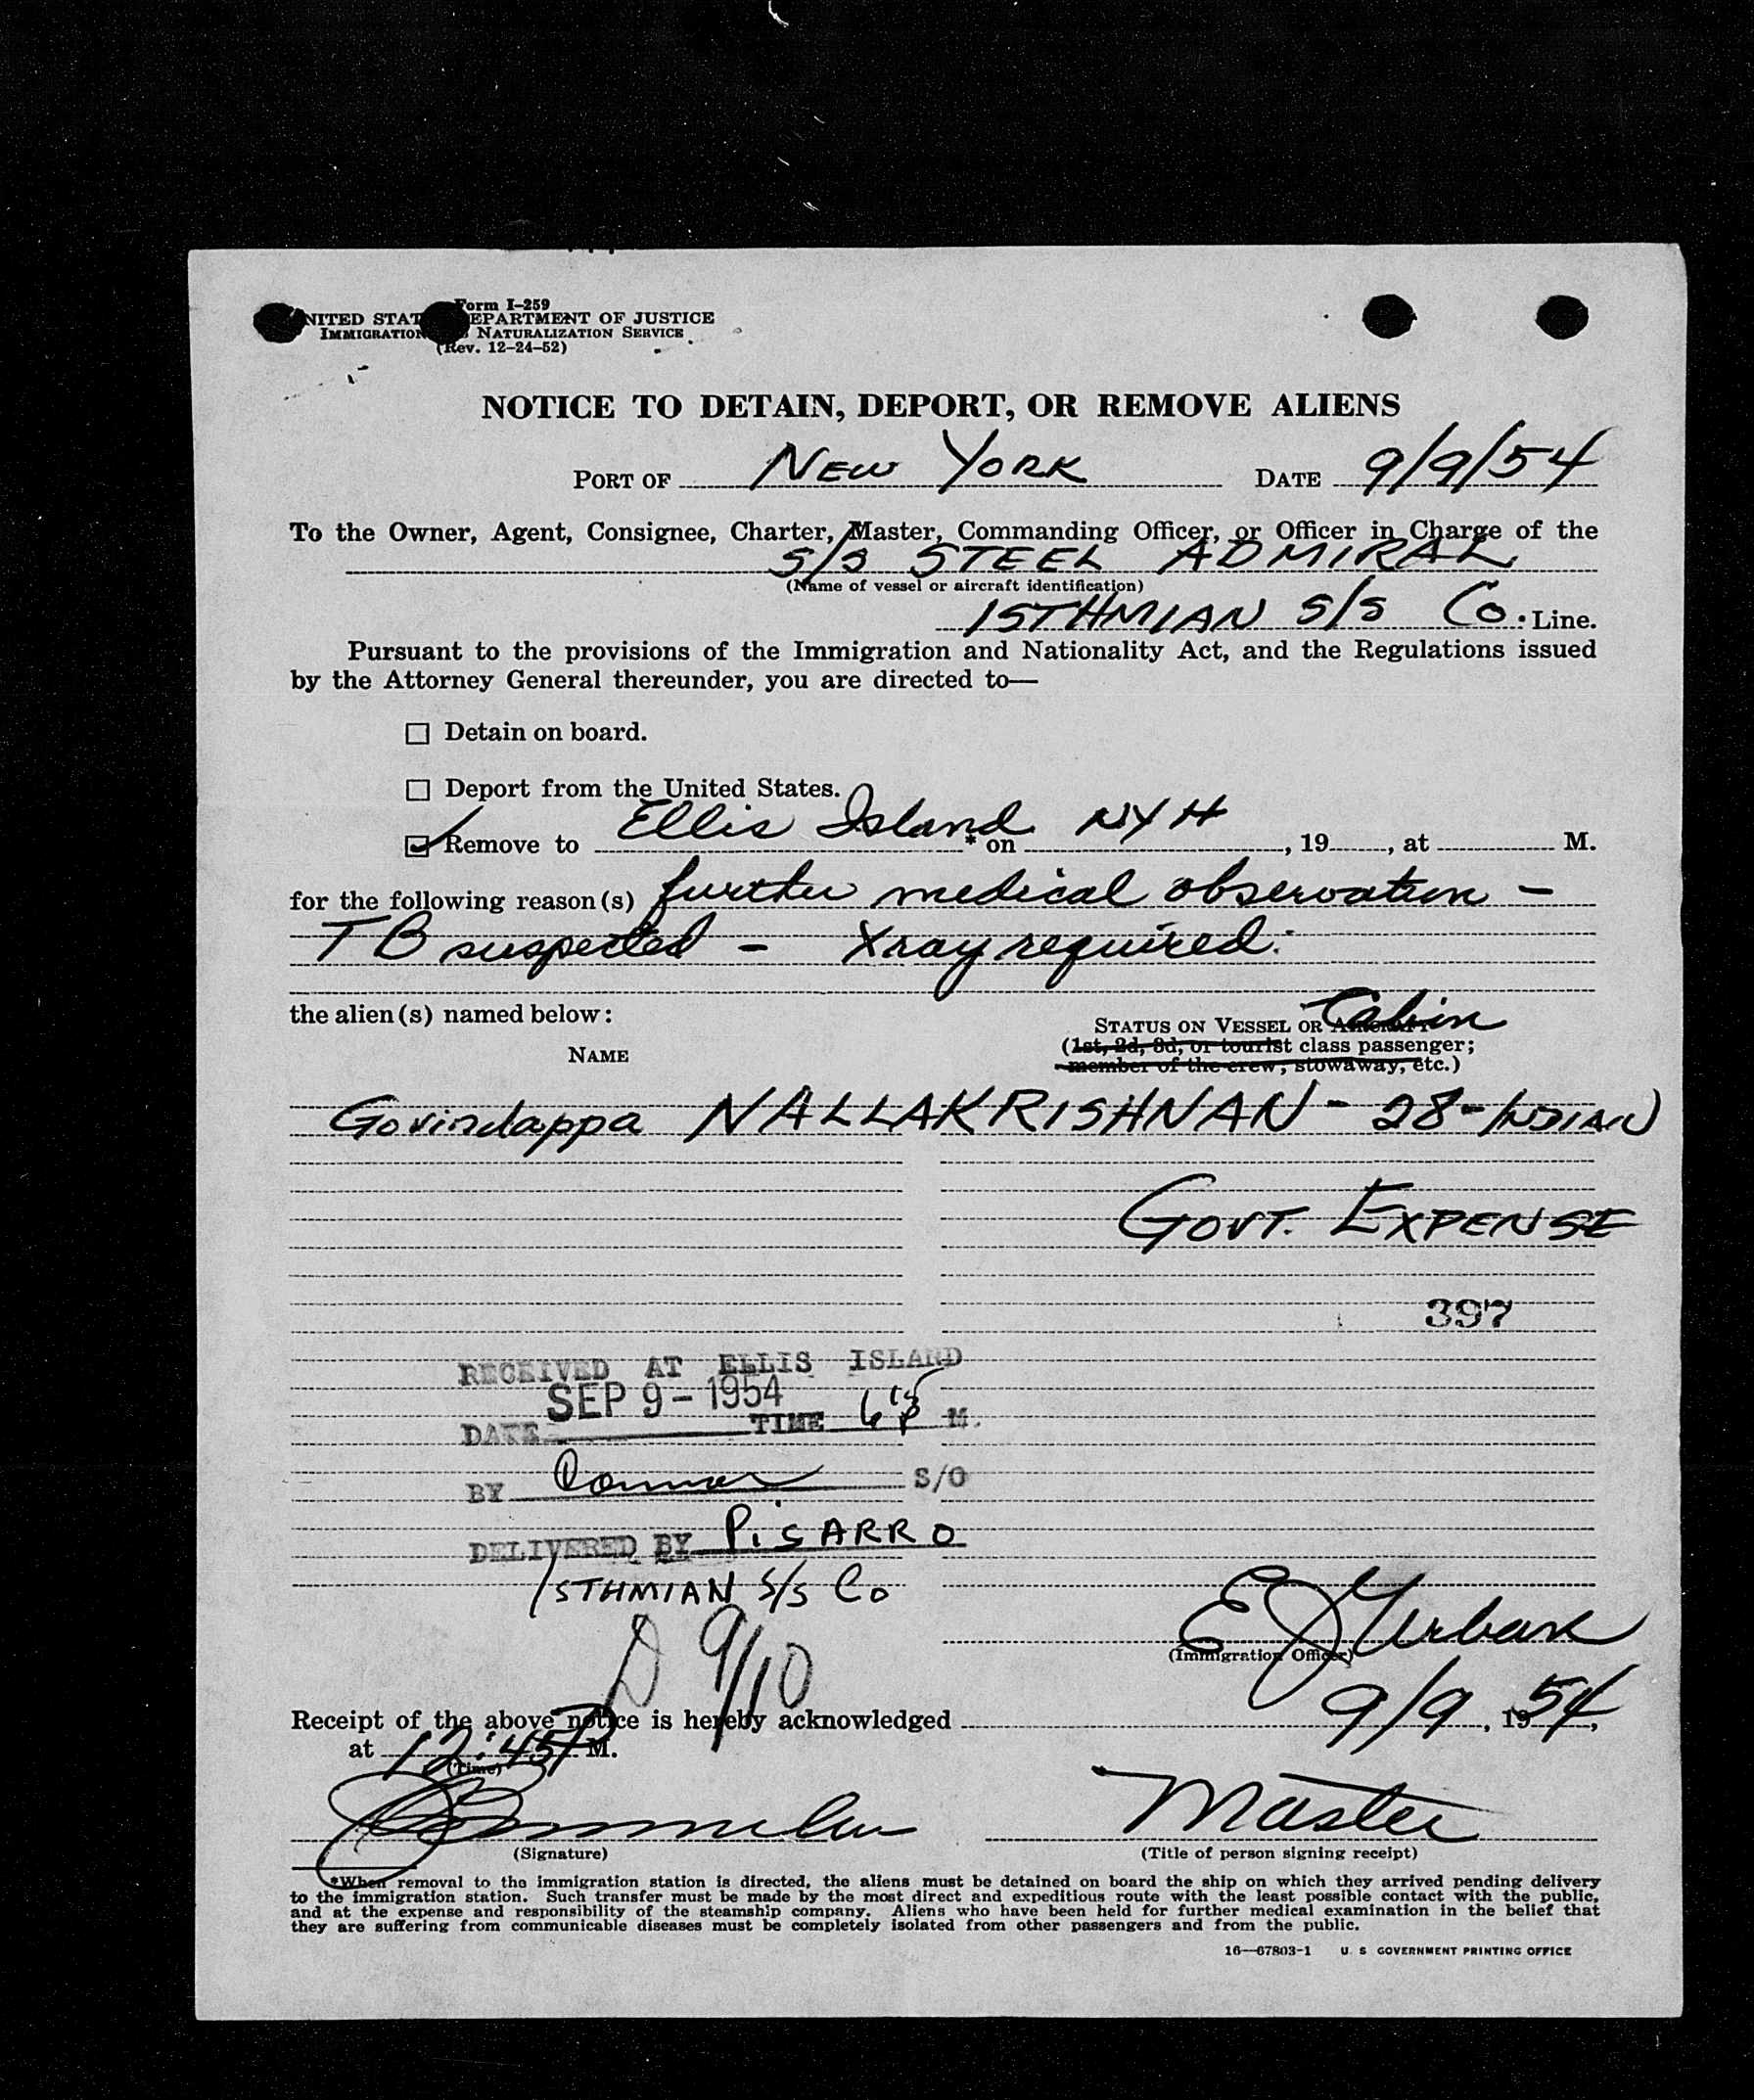 Form I-259
UNITED STATES DEPARTMENT OF JUSTICE
IMMIGRATION NATURALIZATION SERVICE
(Rev. 12-24-52)
NOTICE TO DETAIN, DEPORT, OR REMOVE ALIENS
PORT OF NEW YORK DATE 9/9/54
To the Owner, Agent, Consignee, Charter, Master, Commanding Officer, or Officer in Charge of the
S/S STEEL ADMIRAL
(Name of vessel or aircraft identification)
ISTHMIAN S/S Co. Line.
Pursuant to the provisions of the Immigration and Nationality Act, and the Regulations issued
by the Attorney General thereunder, you are directed to—
Detain on board.
Deport from the United States.
Remove to Ellis Island * on NYH, 19, at M.
for the following reason(s) further medical observation -
TB suspected - Xray required.
the alien(s) named below:
STATUS ON VESSEL OR AIRCRAFT Cabin
NAME
(1st, 2d, 3d, or tourist class passenger;
member of the crew, stowaway, etc.)
Govindappa NALLAKRISHNAN - 28 - INDIAN
GOVT. EXPENSE
397
RECEIVED AT ELLIS ISLAND
SEP 9 - 1954
DATE TIME M.
BY Connor S/O
DELIVERED BY PISARRO
ISTHMIAN S/S Co
D 9/10
E J Urban
(Immigration Officer)
Receipt of the above notice is hereby acknowledged 9/9, 1954,
at 12:45 P M.
(Time)
Master
(Signature) (Title of person signing receipt)
*When removal to the immigration station is directed, the aliens must be detained on board the ship on which they arrived pending delivery
to the immigration station. Such transfer must be made by the most direct and expeditious route with the least possible contact with the public,
and at the expense and responsibility of the steamship company. Aliens who have been held for further medical examination in the belief that
they are suffering from communicable diseases must be completely isolated from other passengers and from the public.
16—67803-1 U. S. GOVERNMENT PRINTING OFFICE